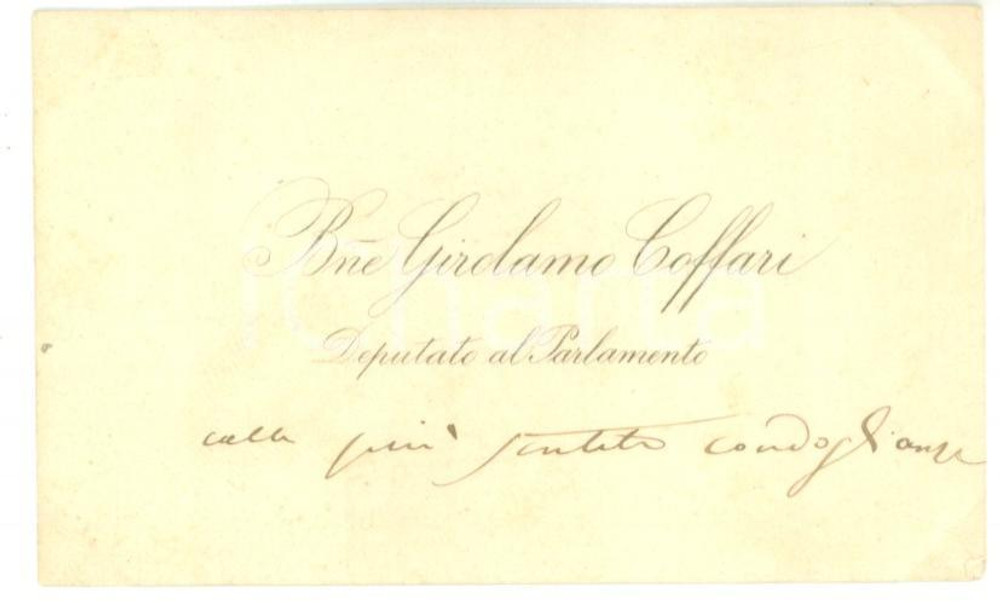 Bne Girolamo Coffari
Deputato al Parlamento
colle più sentite condoglianze
iCharta